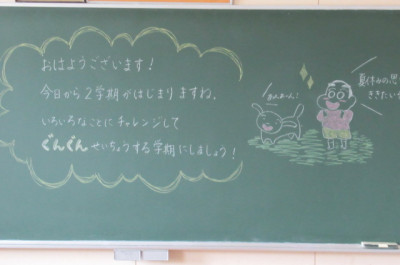 おはようございます!
今日から2学期がはじまりますね。
いろいろなことにチャレンジして
ぐんぐんせいちょうする学期にしましょう!
わんわん!
夏休みの思
ききたいな